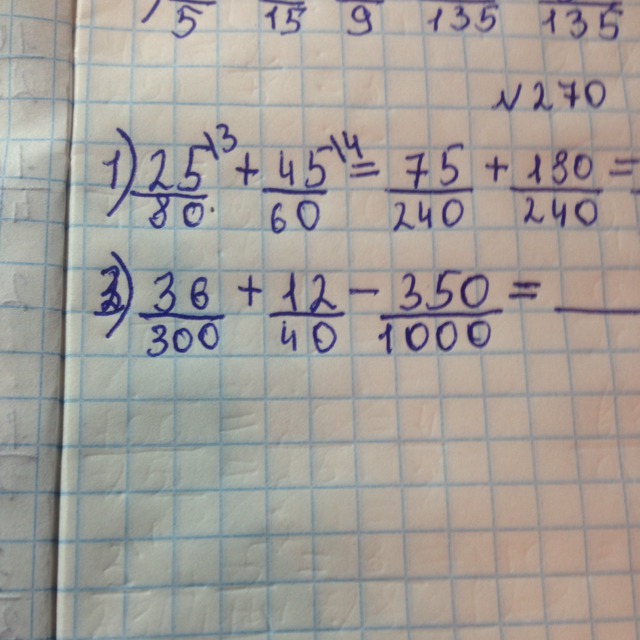 ) 5 15 9 135 135
№ 270
1) 25\3/80 + 45\4/60 = 75/240 + 180/240 =
2) 36/300 + 12/40 - 350/1000 =